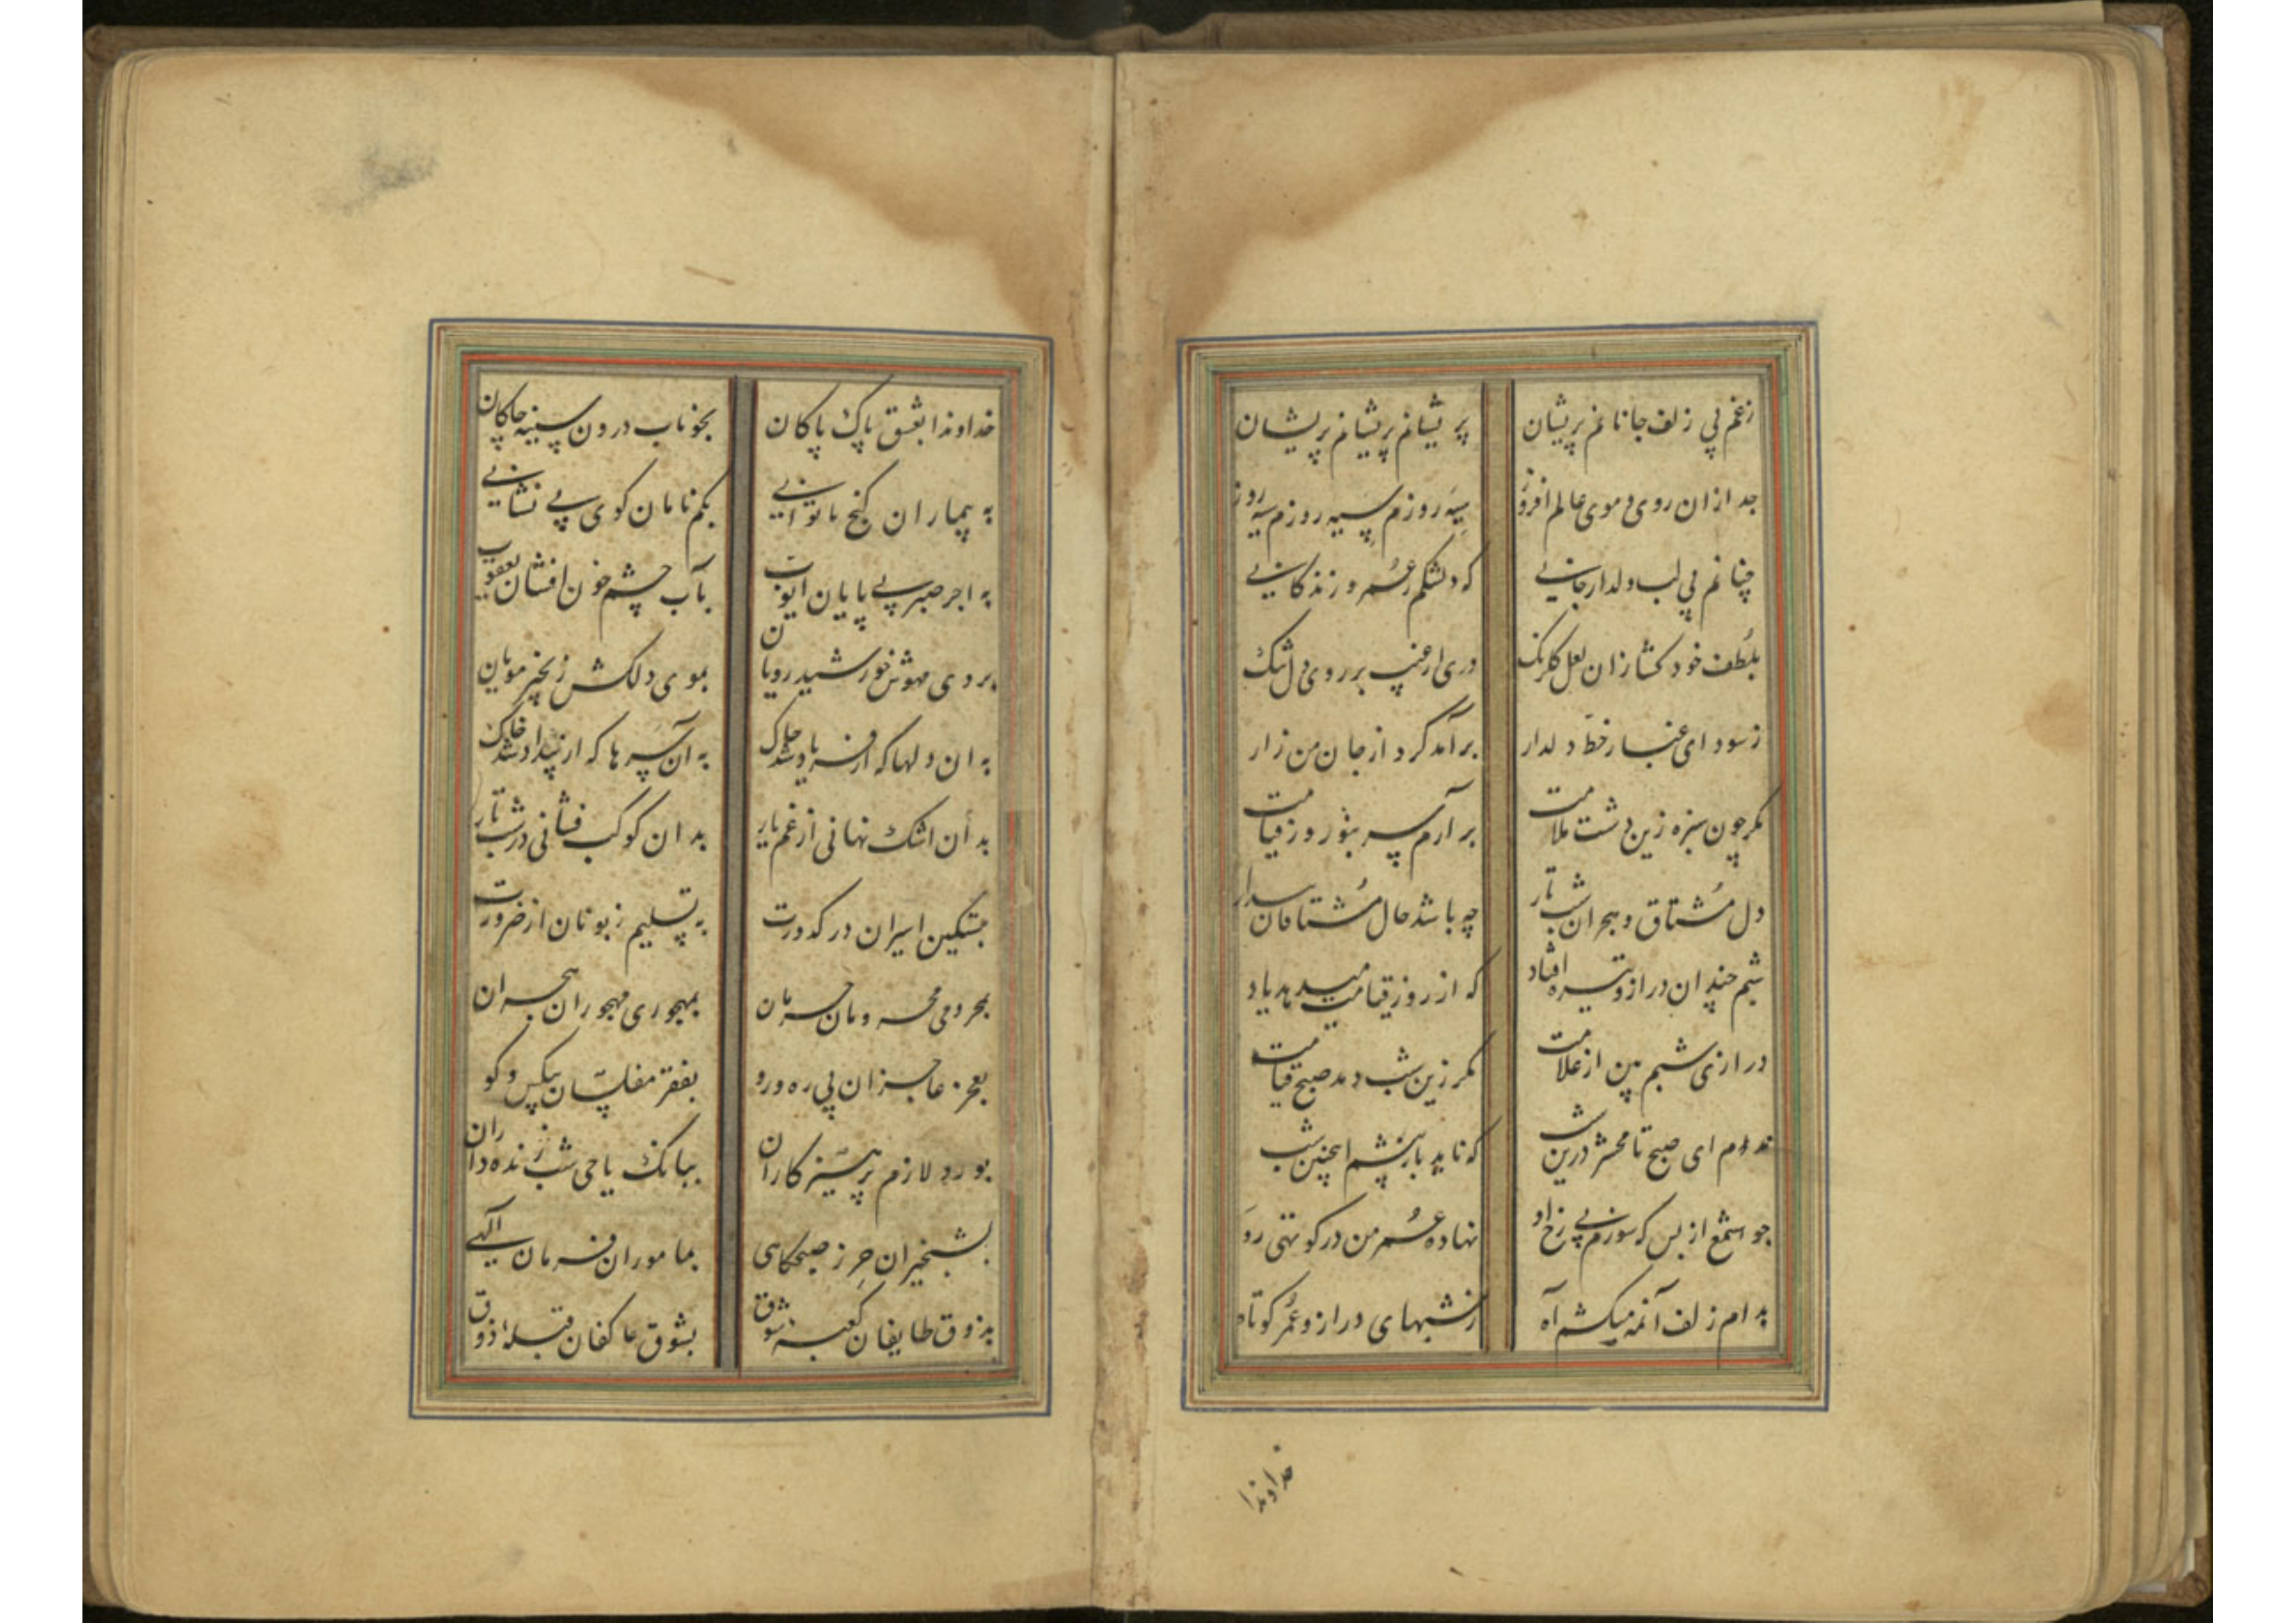 زغم بی زلف جانانم پریشان پریشانم پریشانم پریشان
جدا زان روی و موی عالم افروز سیه روزم سیه روزم سیه روز
چنانم بی لب دلدار جانی که دلتنگم ز عمر و زندگانی
بلطف خود کشا زان لعل کلرنک دری از غیب بر روی دل تنک
ز سودای غبار خط دلدار برآمد کرد از جان من زار
مکر چون سبزه زین دشت ملامت برآرم سر بنور روز قیامت
دل مشتاق و هجران شب تار چه باشد حال مشتاقان
شبم چندان دراز و تیره افتاد که از روز قیامت میدهد یاد
درازی شبم بین از علامت مکر زین شب دمد صبح قیامت
ندادم ای صبح تا محشر درین شب که ناید باز پیشم اینچنین شب
چو شمع از بس که سوزم بی رخ او نهاده عمر من در کوتهی رو
بدام زلف آنمه میکشم آه ز شبهای دراز و عمر کوتاه
خداوندا
خداوندا بعشق پاک پاکان بخوناب درون سینه چاکان
به بیماران کنج ناتوانی بکمنامان کوی بی نشانی
به اجر صبر بی پایان ایوب بآب چشم خون افشان یعقوب
بروی مهوش خورشید رویان بموی دلکش زنجیر مویان
به ان دلها که از فریاد شد چاک به آن سرها که از بیداد شد خاک
بدان اشک نهانی از غم یار بدان کوکب فشانی در شب تار
بتسکین اسیران در کدورت به تسلیم زبونان از ضرورت
بمحرومی محرومان حرمان بمهجوری مهجوران هجران
بعجز عاجزان بی ره و رو بفقر مفلسان بیکس و کو
بورد لازم پرهیزکاران ببانک یا حی شب زنده داران
بشبخیزان حرز صبحکاهی بماموران فرمان آلهی
بذوق طایفان کعبه شوق بشوق عاکفان قبلهٔ ذوق